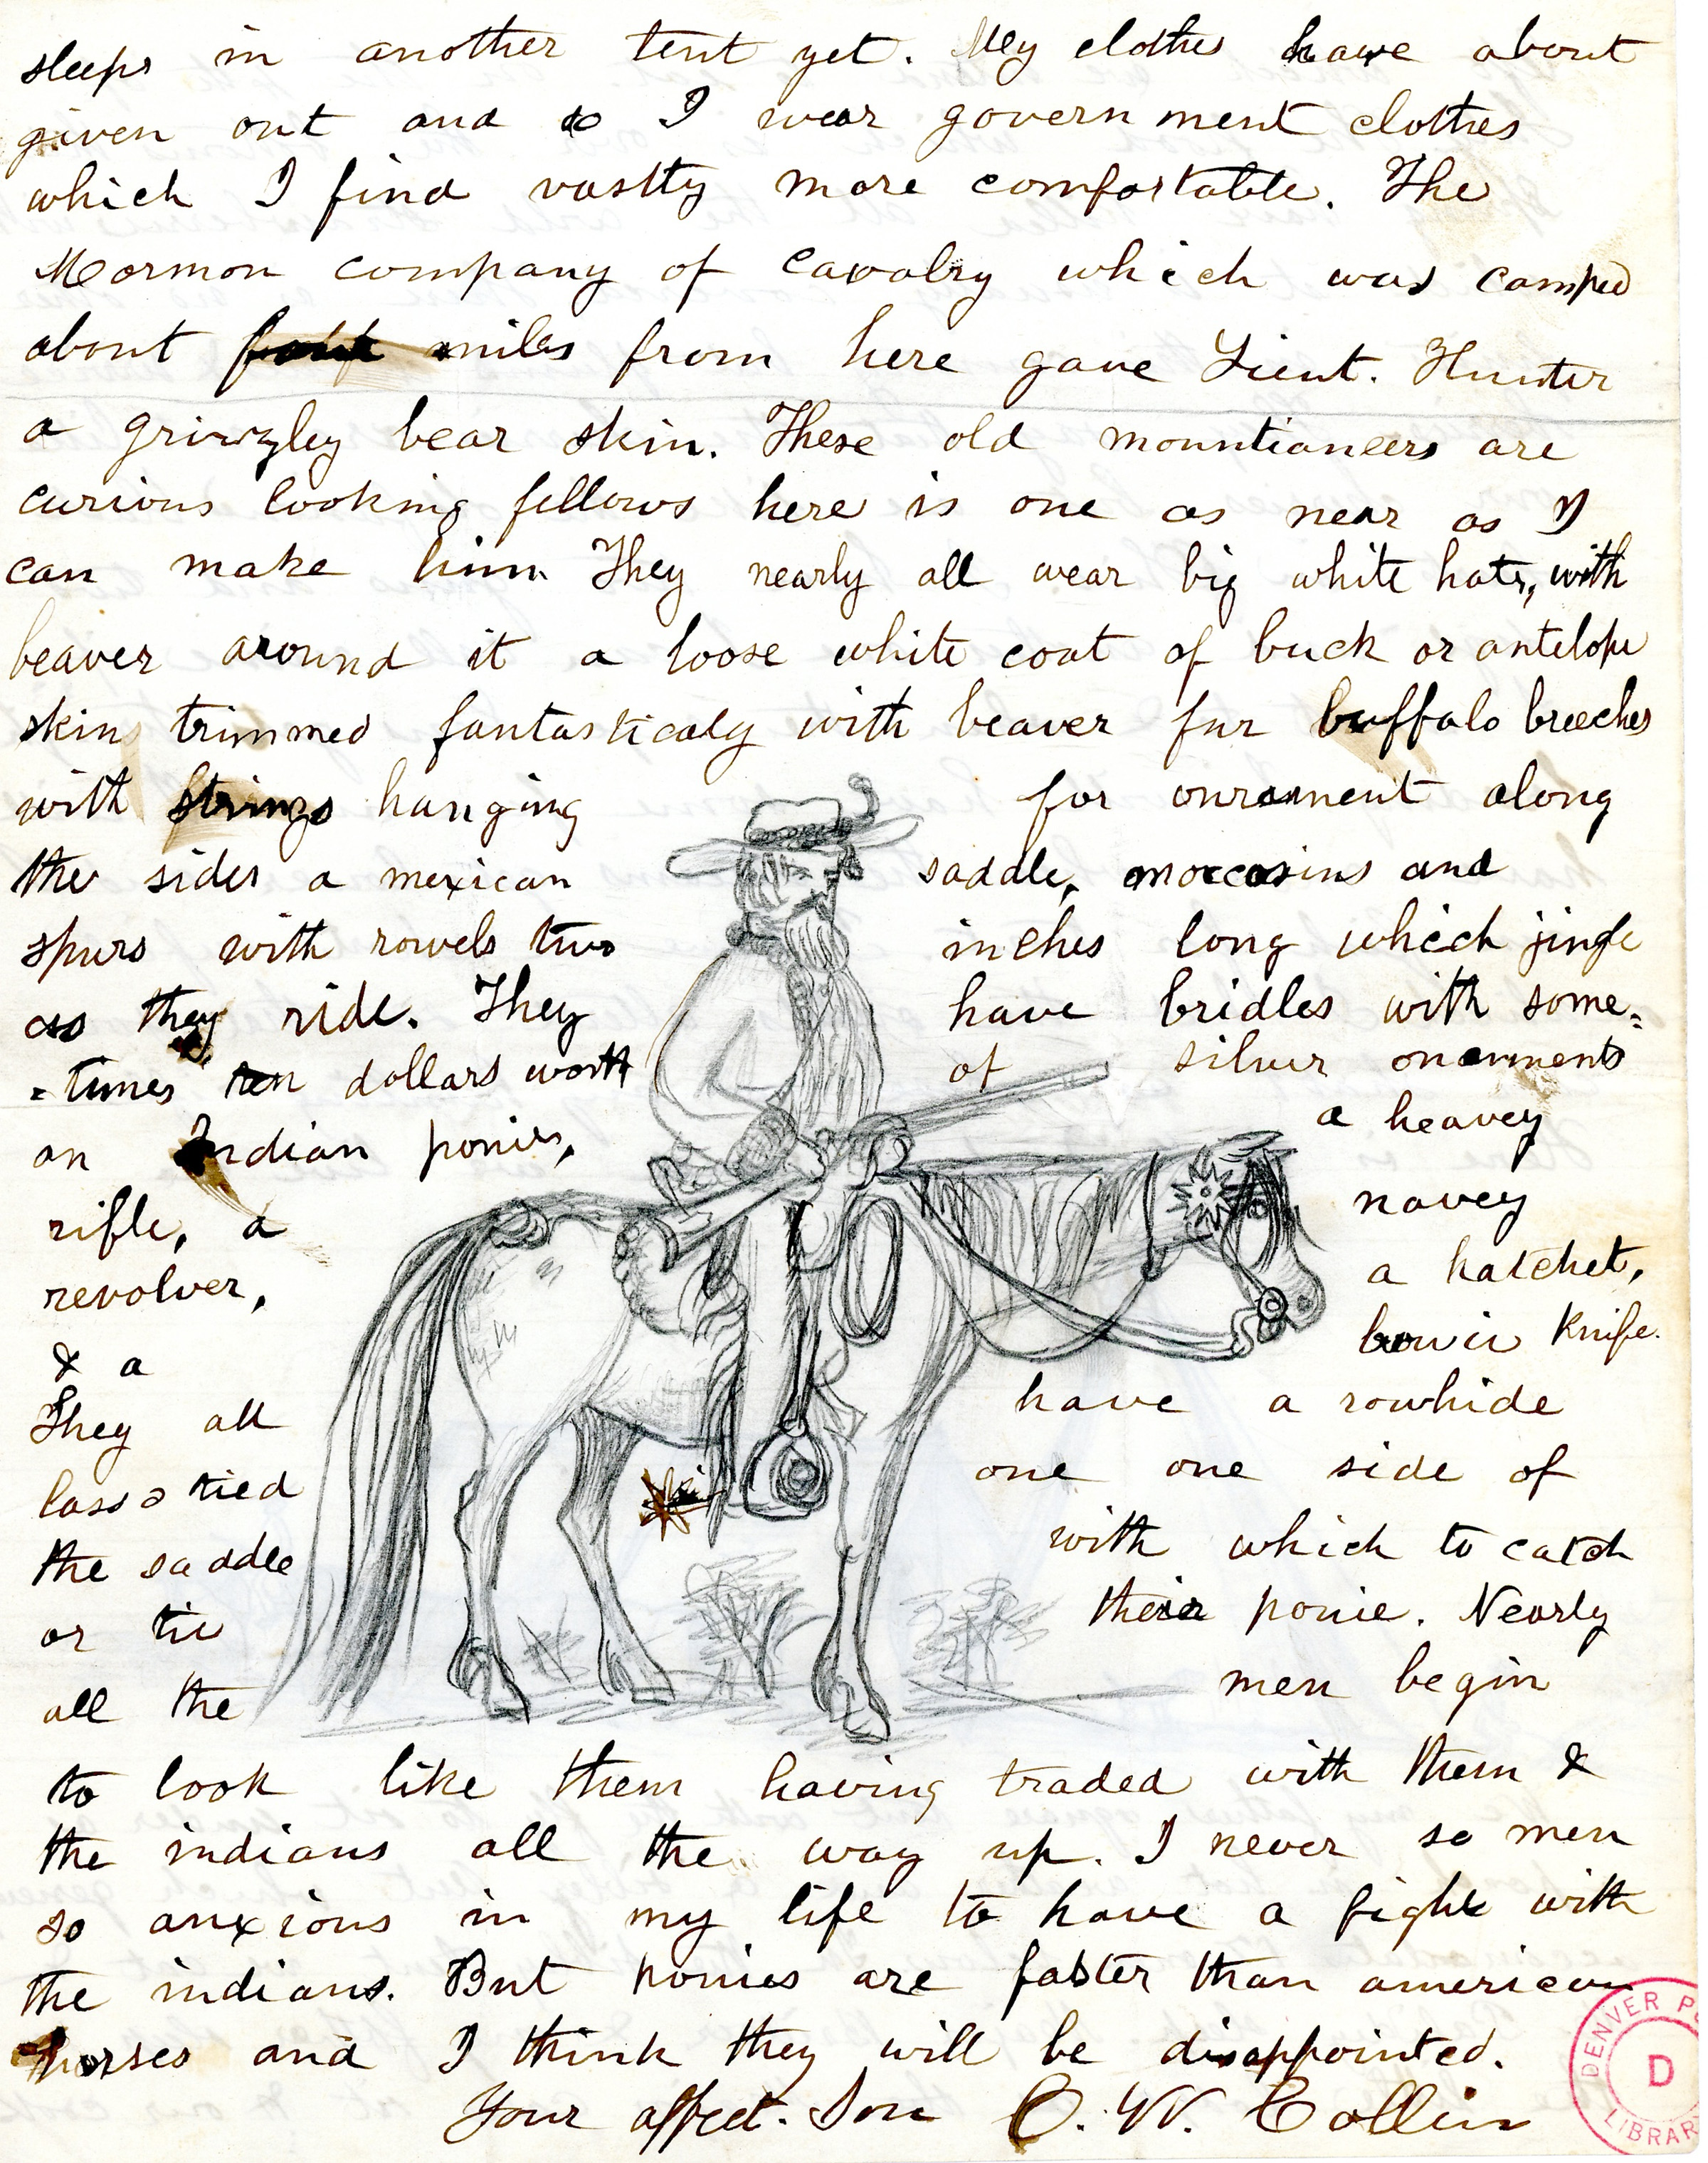 sleeps in another tent yet. My clothes have about
given out and so I wear government clothes
which I find vastly more comfortable. The
Mormon company of cavalry which was camped
about four miles from here gave Lieut. Hunter
a grizzley bear skin. These old mountianeers are
curious looking fellows here is one as near as I
can make him They nearly all wear big white hats, with
beaver around it a loose white coat of buck or antelope
skin trimmed fantasticaly with beaver fur buffalo breeches
with strings hanging for onrament along
the sides a mexican saddle, moccasins and
spurs with rowels two inches long which jingle
as they ride. They have bridles with some=
=times ten dollars worth of silver onarments
on Indian ponies, a heavey
rifle, a navey
revolver, a hatchet,
& a bowie Knife.
They all have a rawhide
lasso tied one one side of
the saddle with which to catch
or tie their ponie. Nearly
all the men begin
to look like them having traded with them &
the indians all the way up. I never se men
so anxious in my life to have a fight with
the indians. But ponies are faster than american
horses and I think they will be disappointed.
Your affect. Son C. W. Collins
DENVER PU
D
LIBRAR